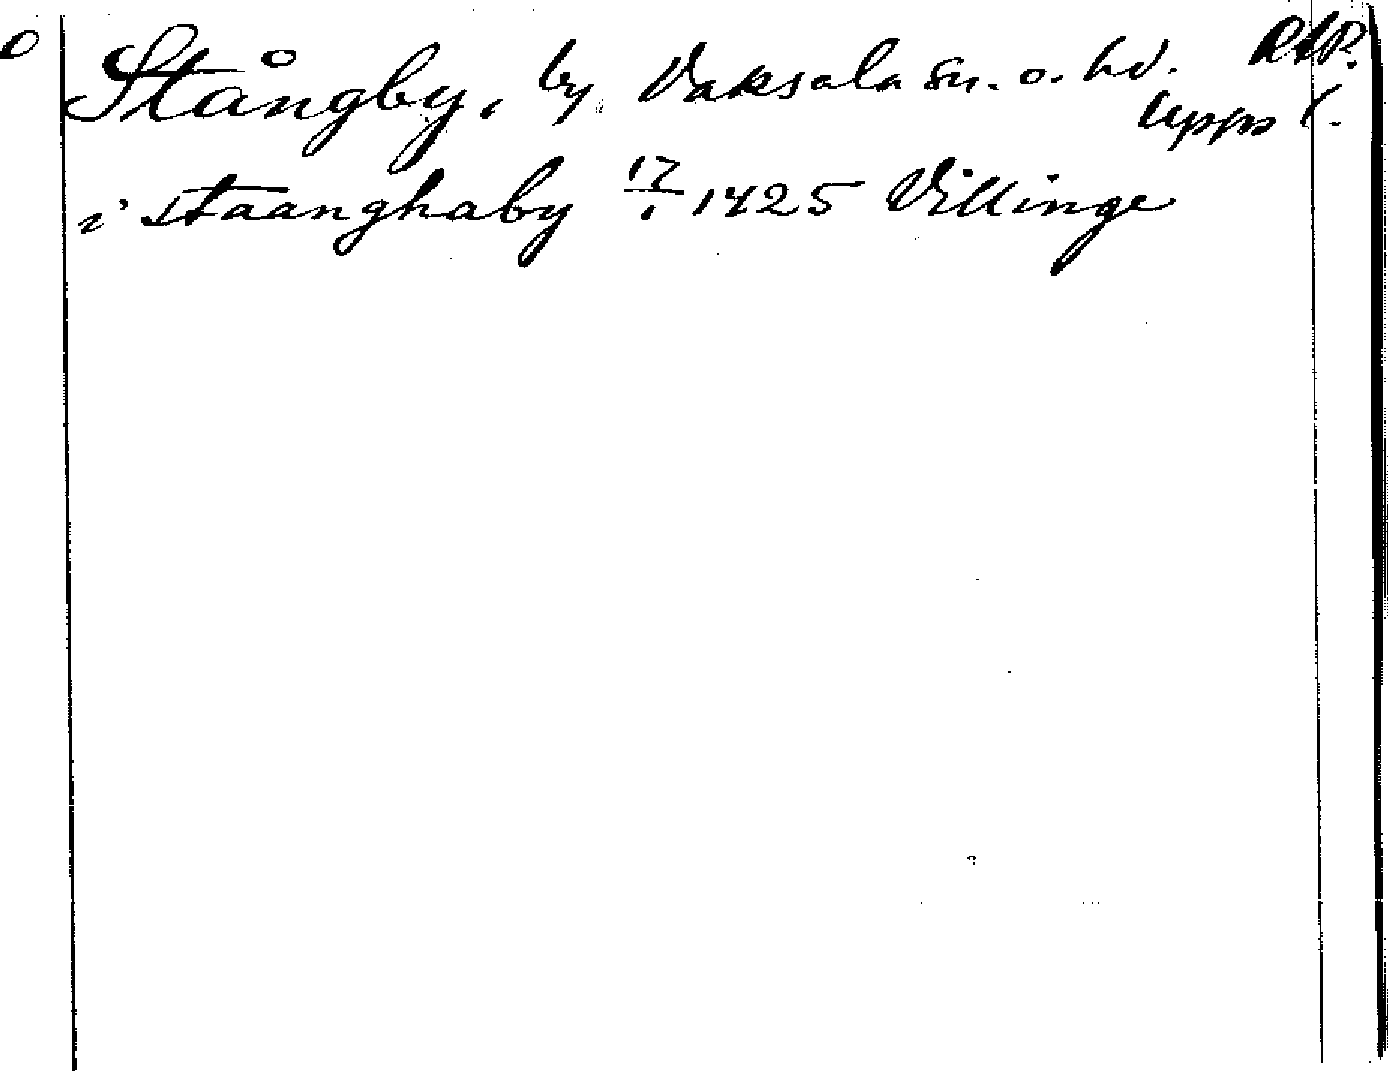 Stångby, by, Vaksala sn. o. hd. RAP.
Upps l.
i staanghaby 17/1 1425 Villinge